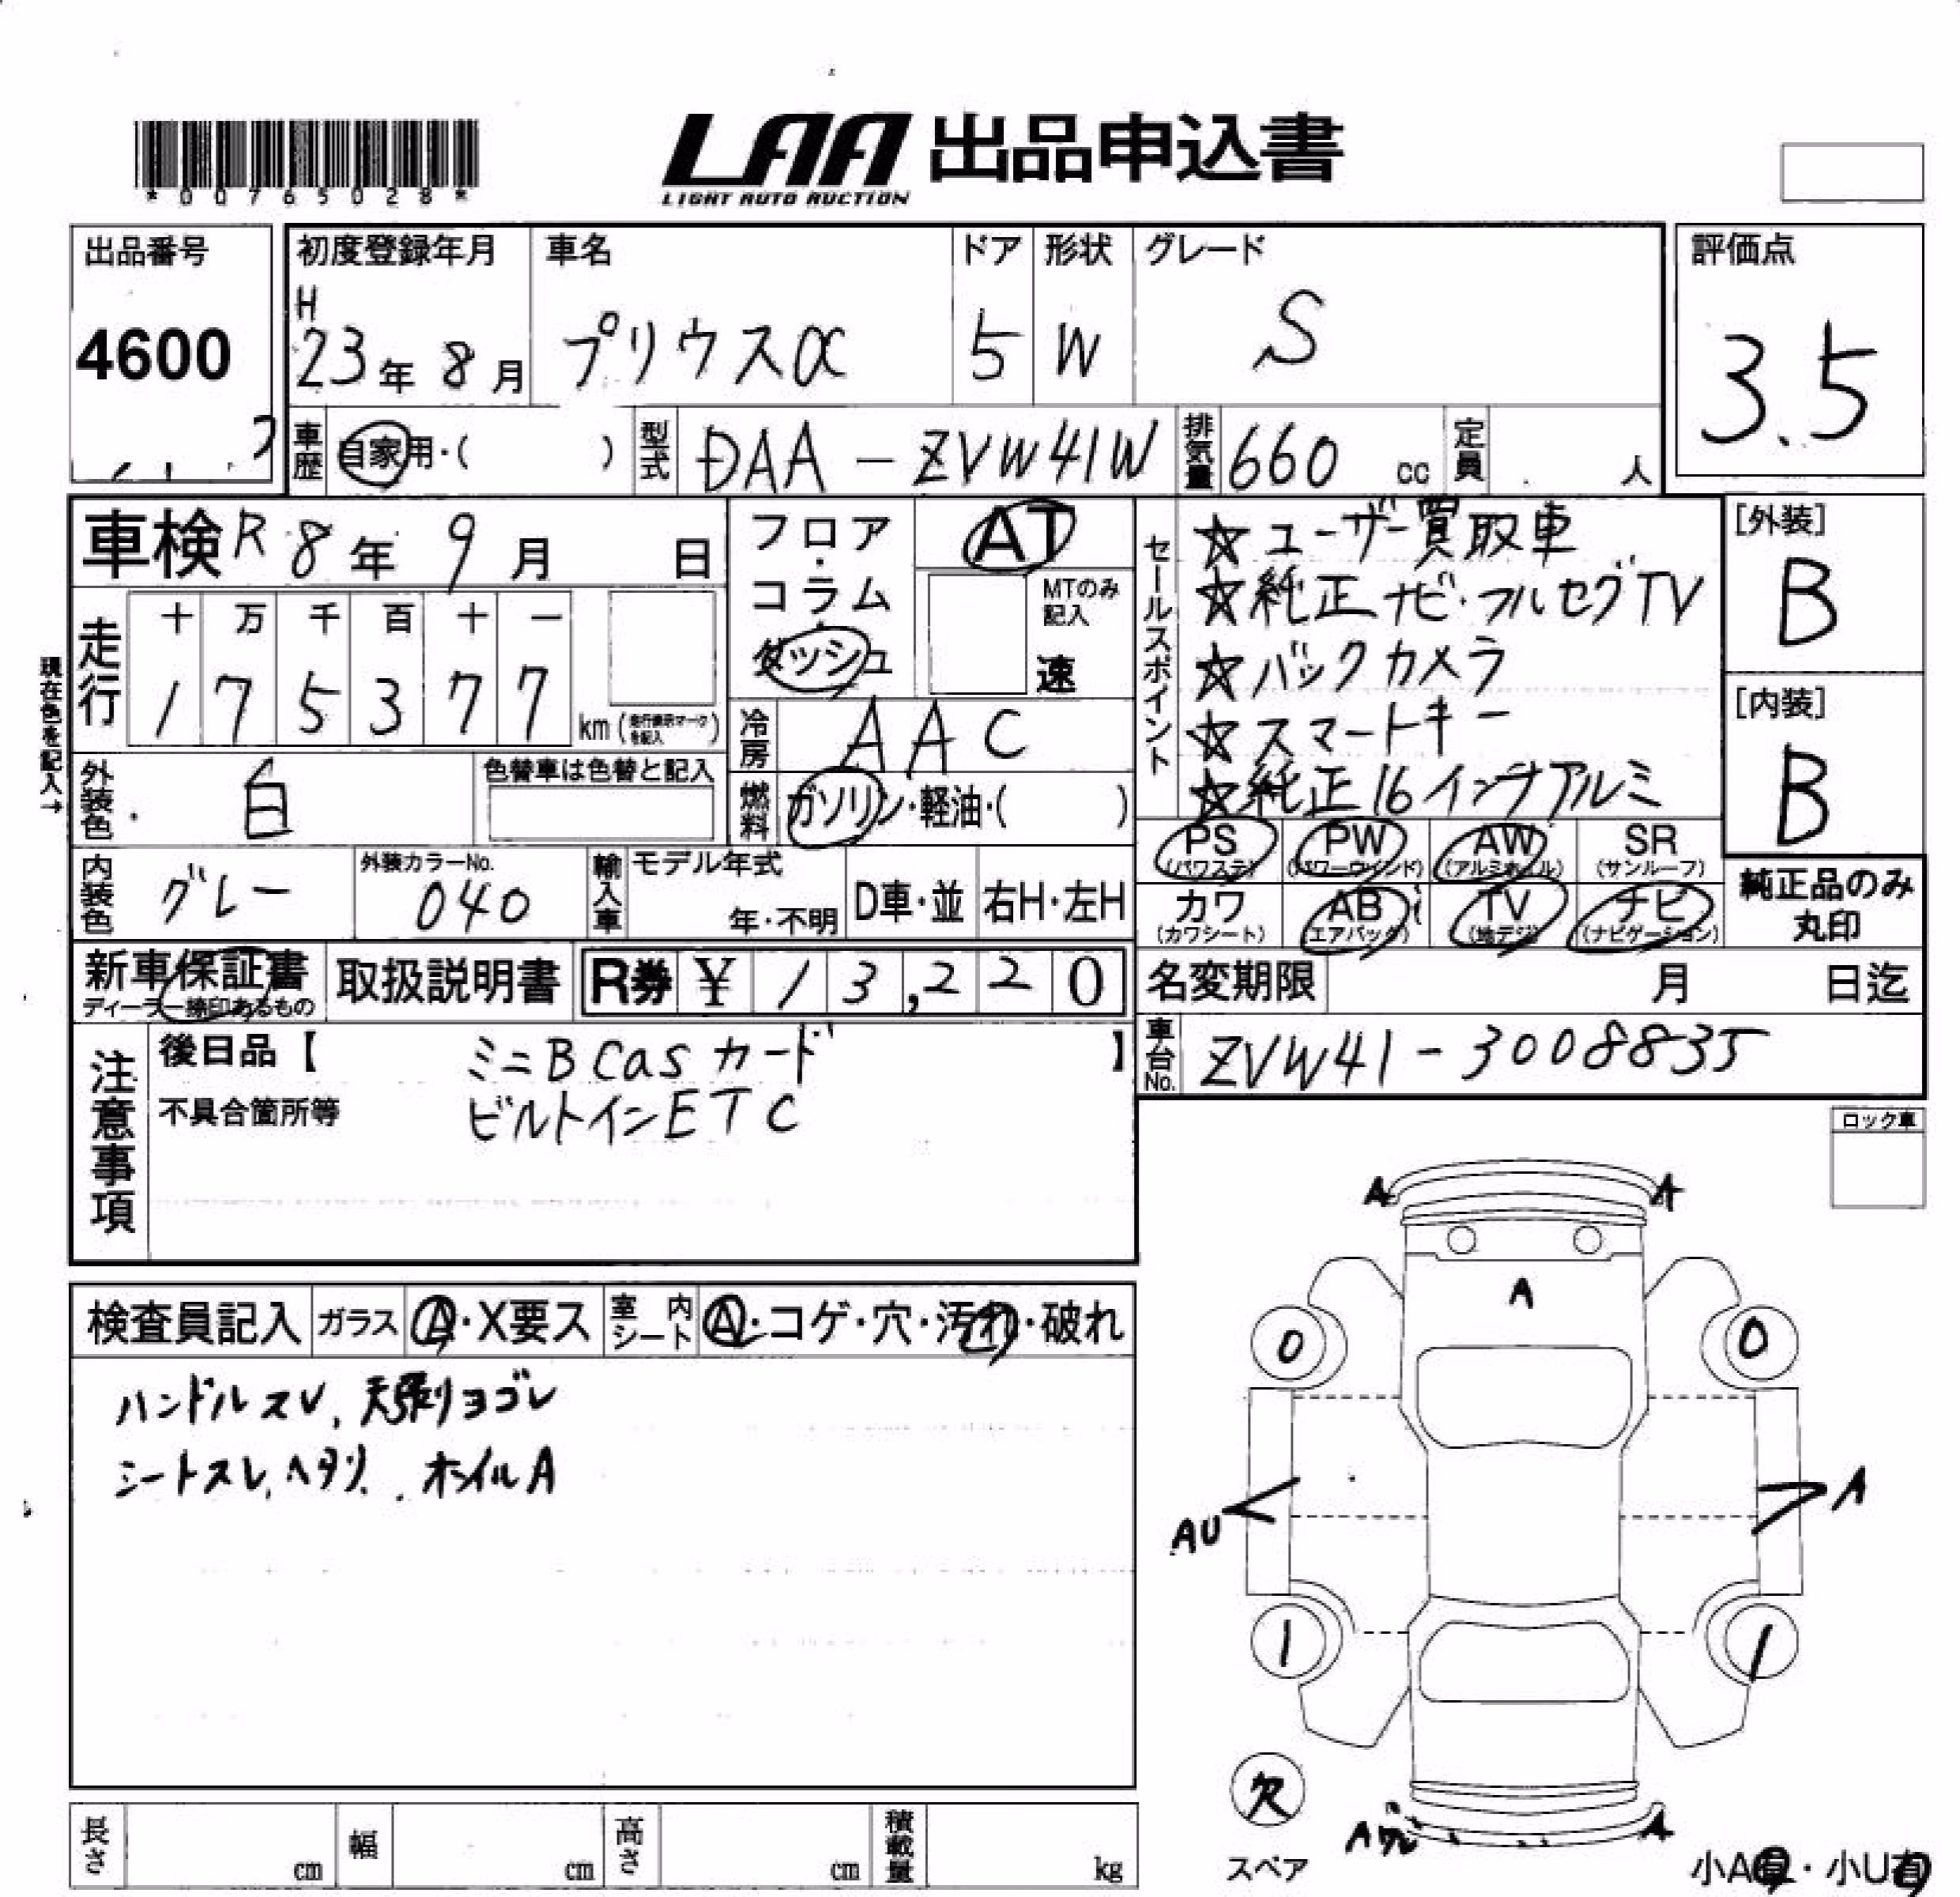 *00765028*
LAA 出品申込書
LIGHT AUTO AUCTION
出品番号
4600
初度登録年月
H
23年 8月
車名
プリウスα
ドア
5
形状
W
グレード
S
評価点
3.5
車歴
自家用・( )
型式
DAA-ZVW41W
排気量
660 cc
定員
人
車検 R 8年 9月 日
フロア・コラム
ダッシュ
AT
MTのみ記入
速
走行
十 万 千 百 十 一
1 7 5 3 7 7
km (走行表示マークを記入)
現在色を記入→
冷房
AAC
燃料
ガソリン・軽油・( )
外装色
白
色替車は色替と記入
内装色
グレー
外装カラーNo.
040
輸入車
モデル年式
年・不明
D車・並
右H・左H
セールスポイント
☆ユーザー買取車
☆純正ナビ・フルセグTV
☆バックカメラ
☆スマートキー
☆純正16インチアルミ
[外装]
B
[内装]
B
PS (パワステ)
PW (パワーウインド)
AW (アルミホイル)
SR (サンルーフ)
カワ (カワシート)
AB (エアバッグ)
TV (地デジ)
ナビ (ナビゲーション)
純正品のみ
丸印
新車保証書
ディーラー締印あるもの
取扱説明書
R券 ¥ 13,220
名変期限 月 日迄
車台No.
ZVW41-3008835
注意事項
後日品【 ミニB Casカード 】
不具合箇所等 ビルトインETC
ロック車
検査員記入
ガラス
A・X要ス
室内シート
A・コゲ・穴・汚れ・破れ
ハンドルスレ、天張りヨゴレ
シートスレ、ヘタリ、ホイルA
A A
A
0 0
AU A
1 1
欠
スペア
A A
小A有・小U有
長さ cm
幅 cm
高さ cm
積載量 kg